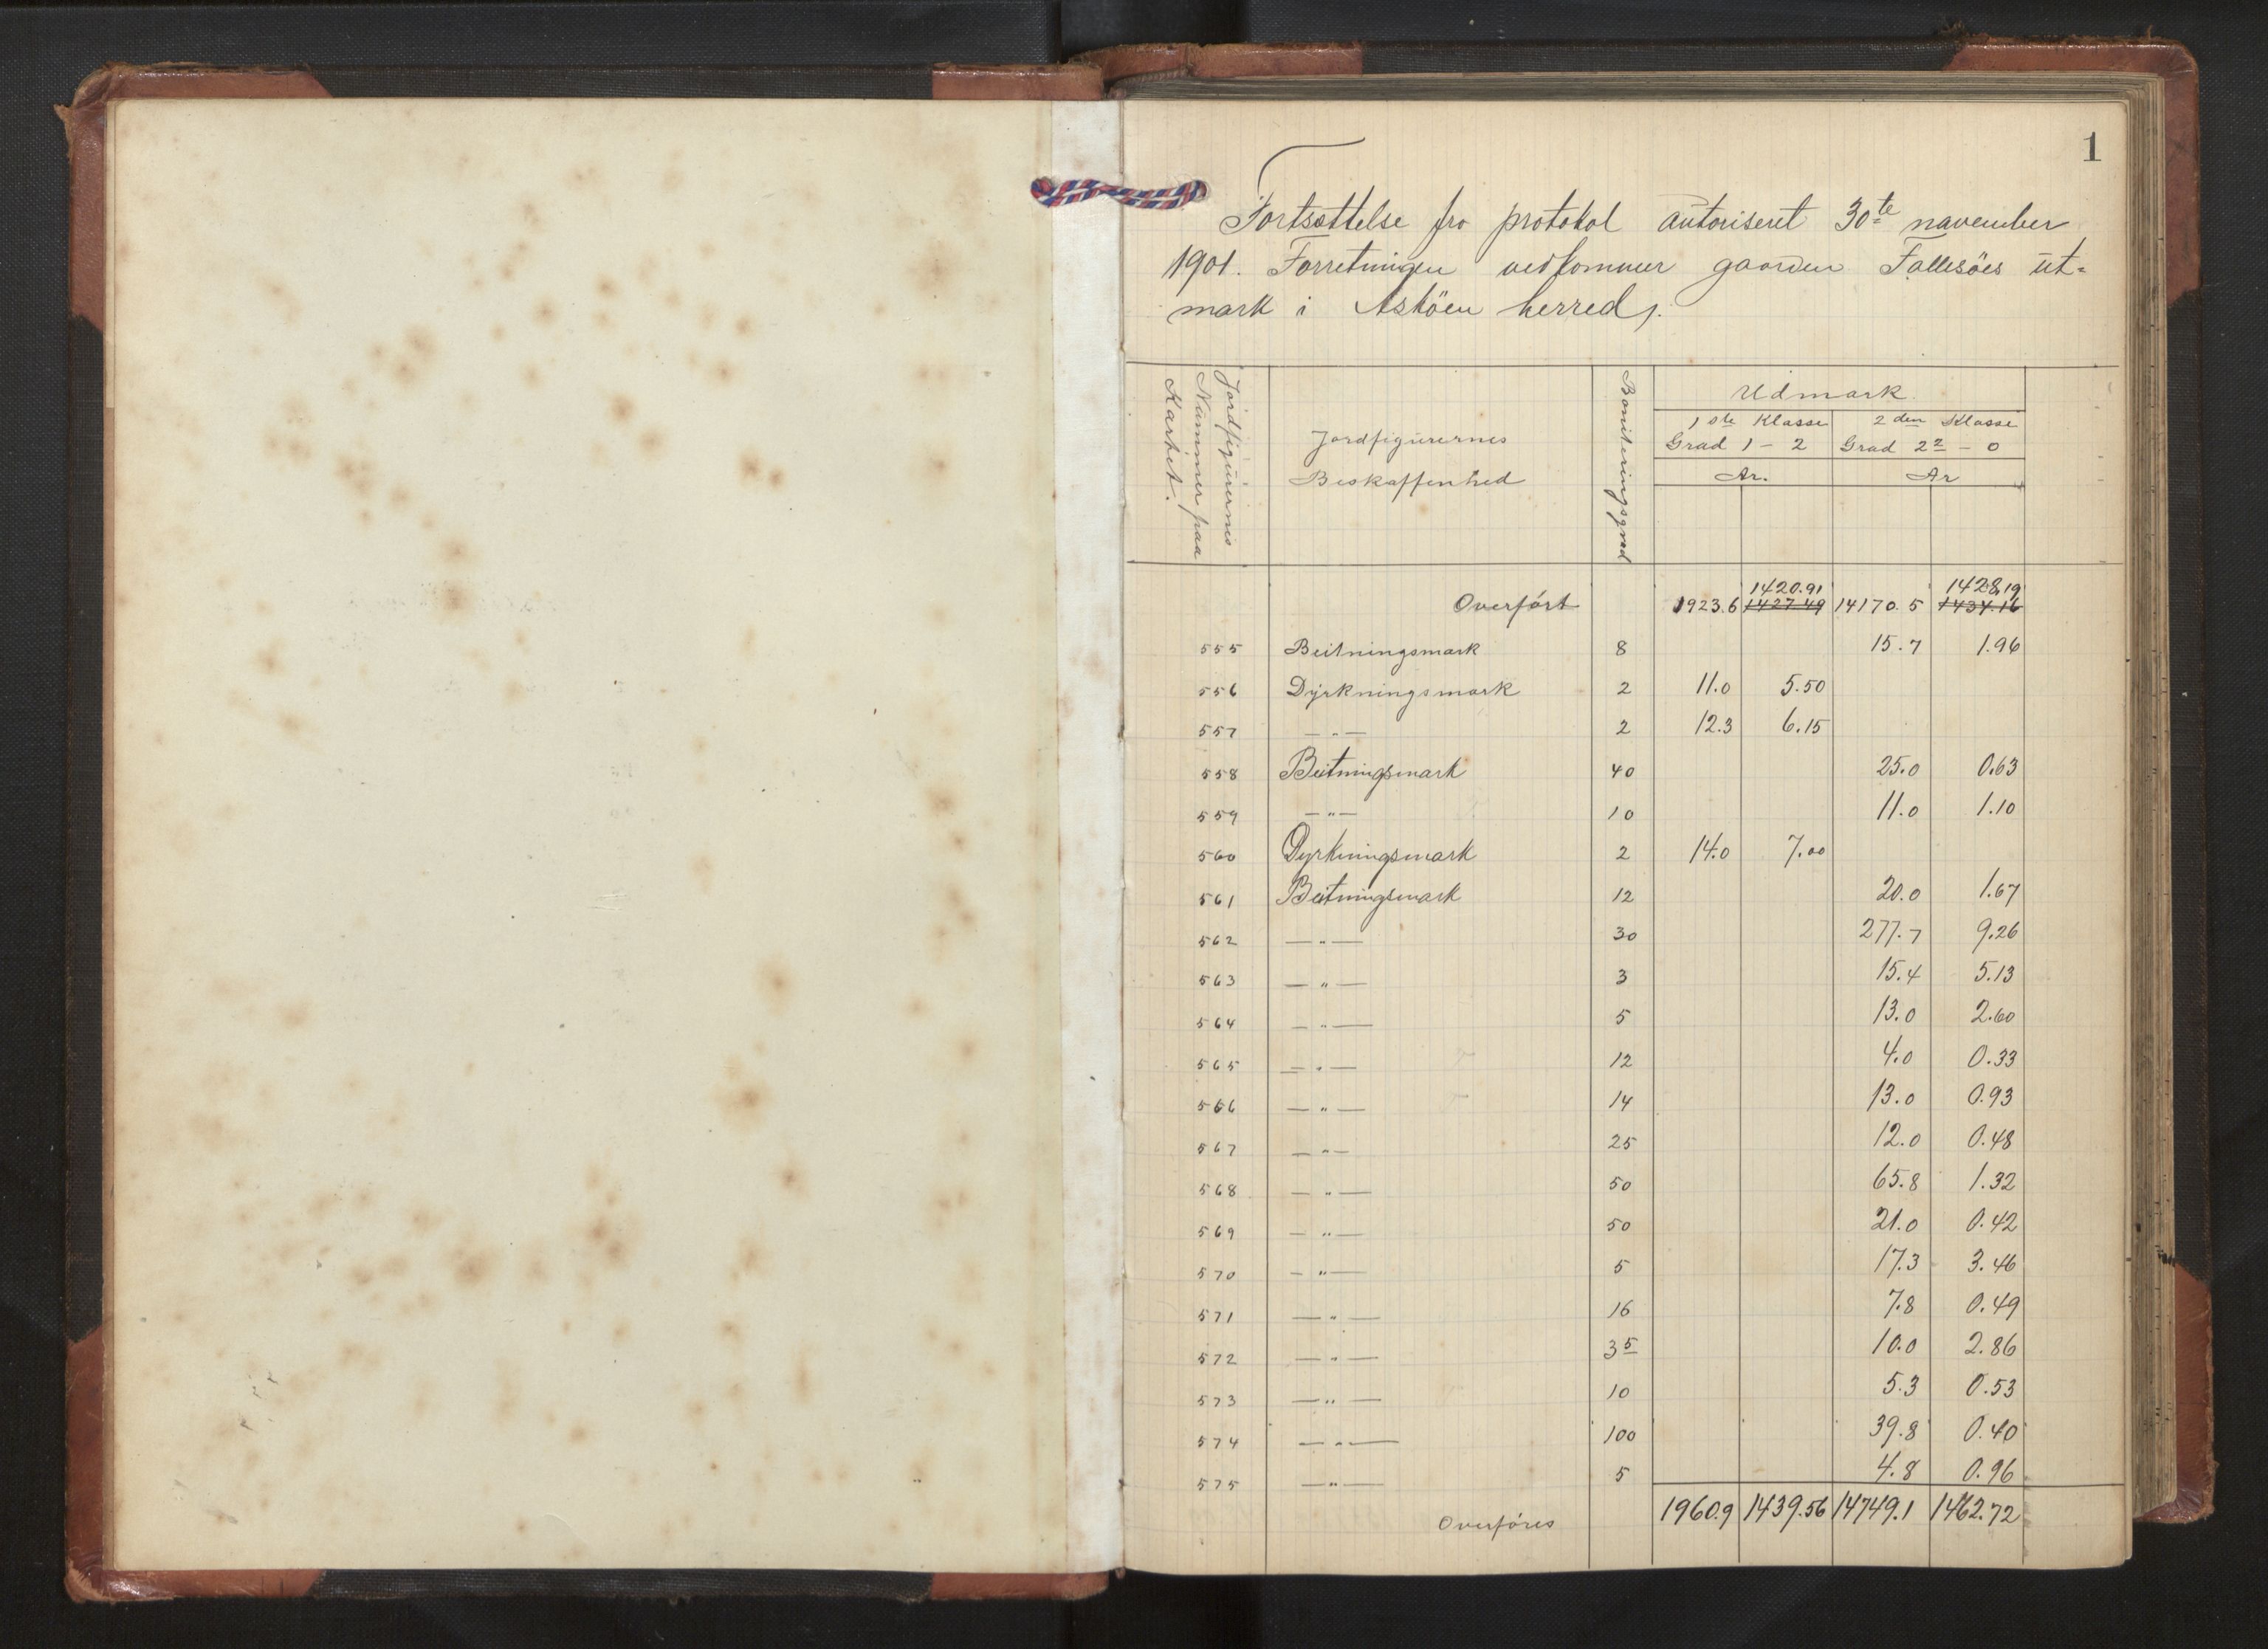 1
Fortsættelse fra protokol autoriseret 30te november
1901. Forretningen vedkommer gaarden Fallesöes ut=
mark i Asköen herred.
Jordfigurernes
Nummer paa
Kartet.
Jordfigurernes
Beskaffenhed
Boniteringsgrad
Udmark
1ste Klasse 2den Klasse
Grad 1 - 2 Grad 2 2 - 0
Ar. Ar
1420.91 1428,19
Overfórt 1923.6 1427.49 14170.5 1434.16
555 Beitningsmark 8 15.7 1.96
556 Dyrkningsmark 2 11.0 5.50
557 — „ — 2 12.3 6.15
558 Beitningsmark 40 25.0 0.63
559 — „ — 10 11.0 1.10
560 Dyrkningsmark 2 14.0 7.00
561 Beitningsmark 12 20.0 1.67
562 — „ — 30 277.7 9.26
563 — „ — 3 15.4 5.13
564 — „ — 5 13.0 2.60
565 — „ — 12 4.0 0.33
566 — „ — 14 13.0 0.93
567 — „ — 25 12.0 0.48
568 — „ — 50 65.8 1.32
569 — „ — 50 21.0 0.42
570 — „ — 5 17.3 3.46
571 — „ — 16 7.8 0.49
572 — „ — 3 5 10.0 2.86
573 — „ — 10 5.3 0.53
574 — „ — 100 39.8 0.40
575 — „ — 5 4.8 0.96
Overfóres 1960.9 1439.56 14749.1 1462.72